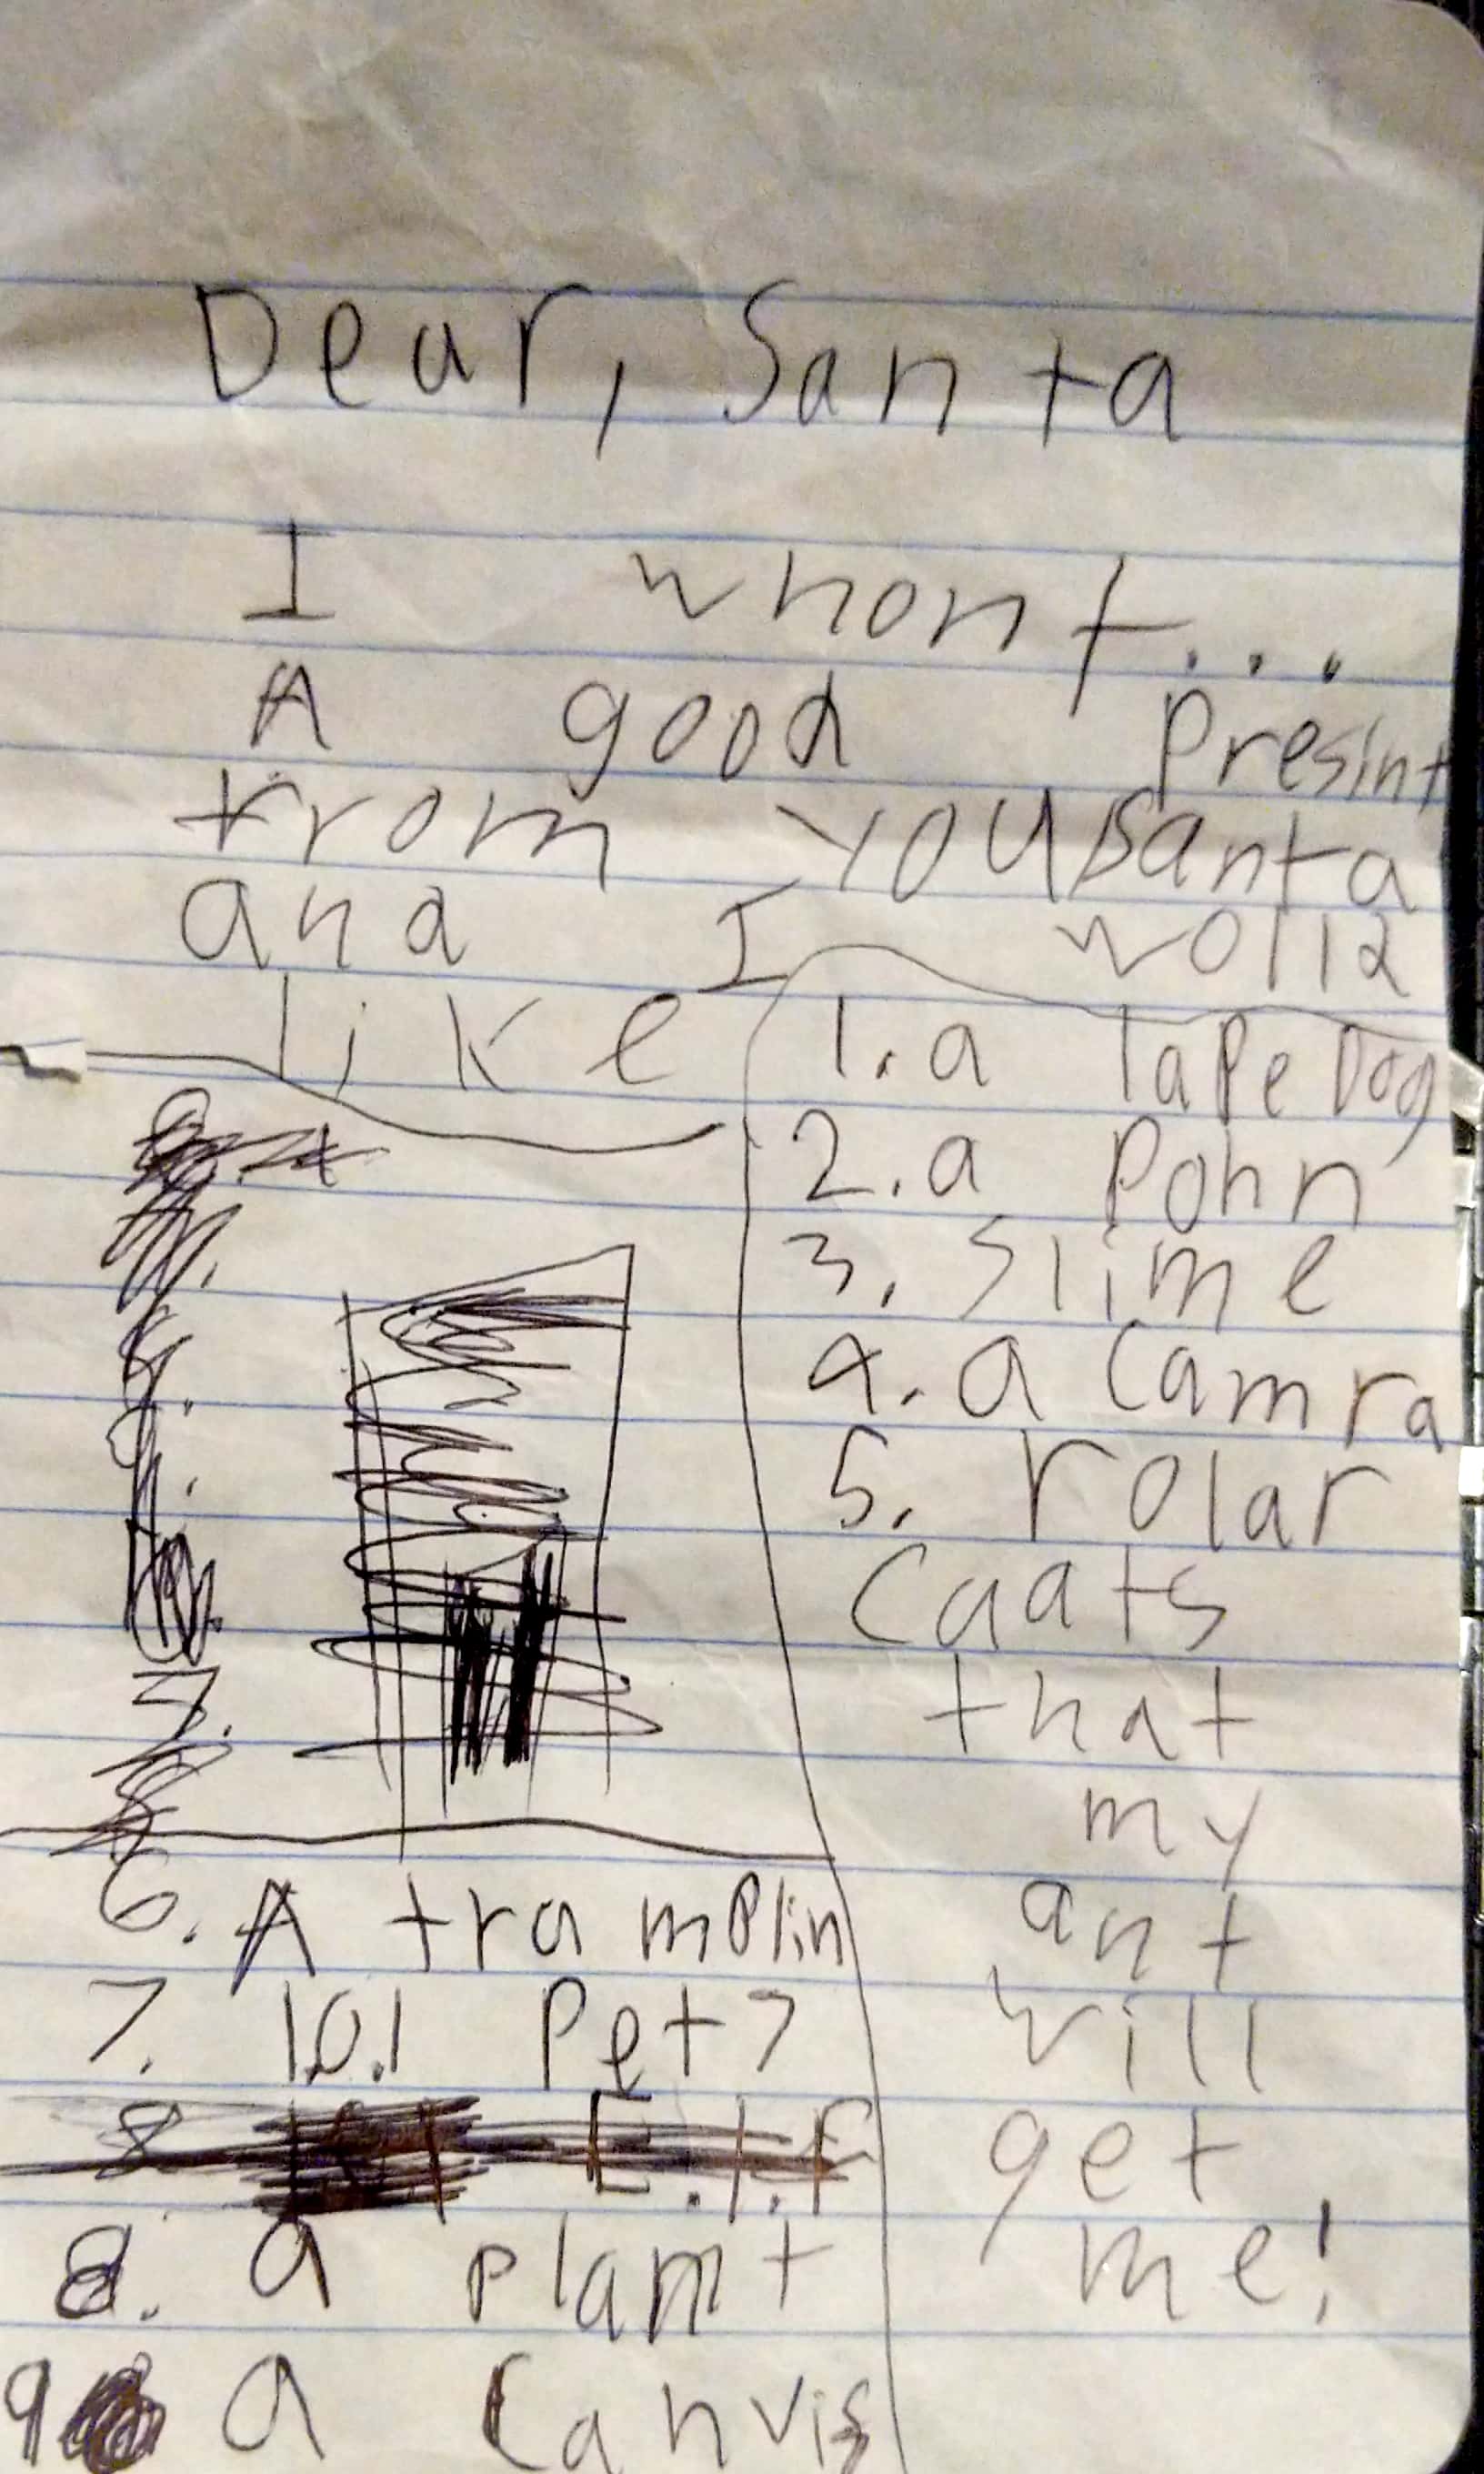 Dear, Santa
I whont...
A good Presint
from you Santa
and I wolld
like
1. a Tape Dog
2. a Pohn
3. Slime
4. a Camra
5. rolar
Caats
that
my
ant
will
get
me!
6. A tramplin
7. 101 Pets
8. a plant
9 a Canvis